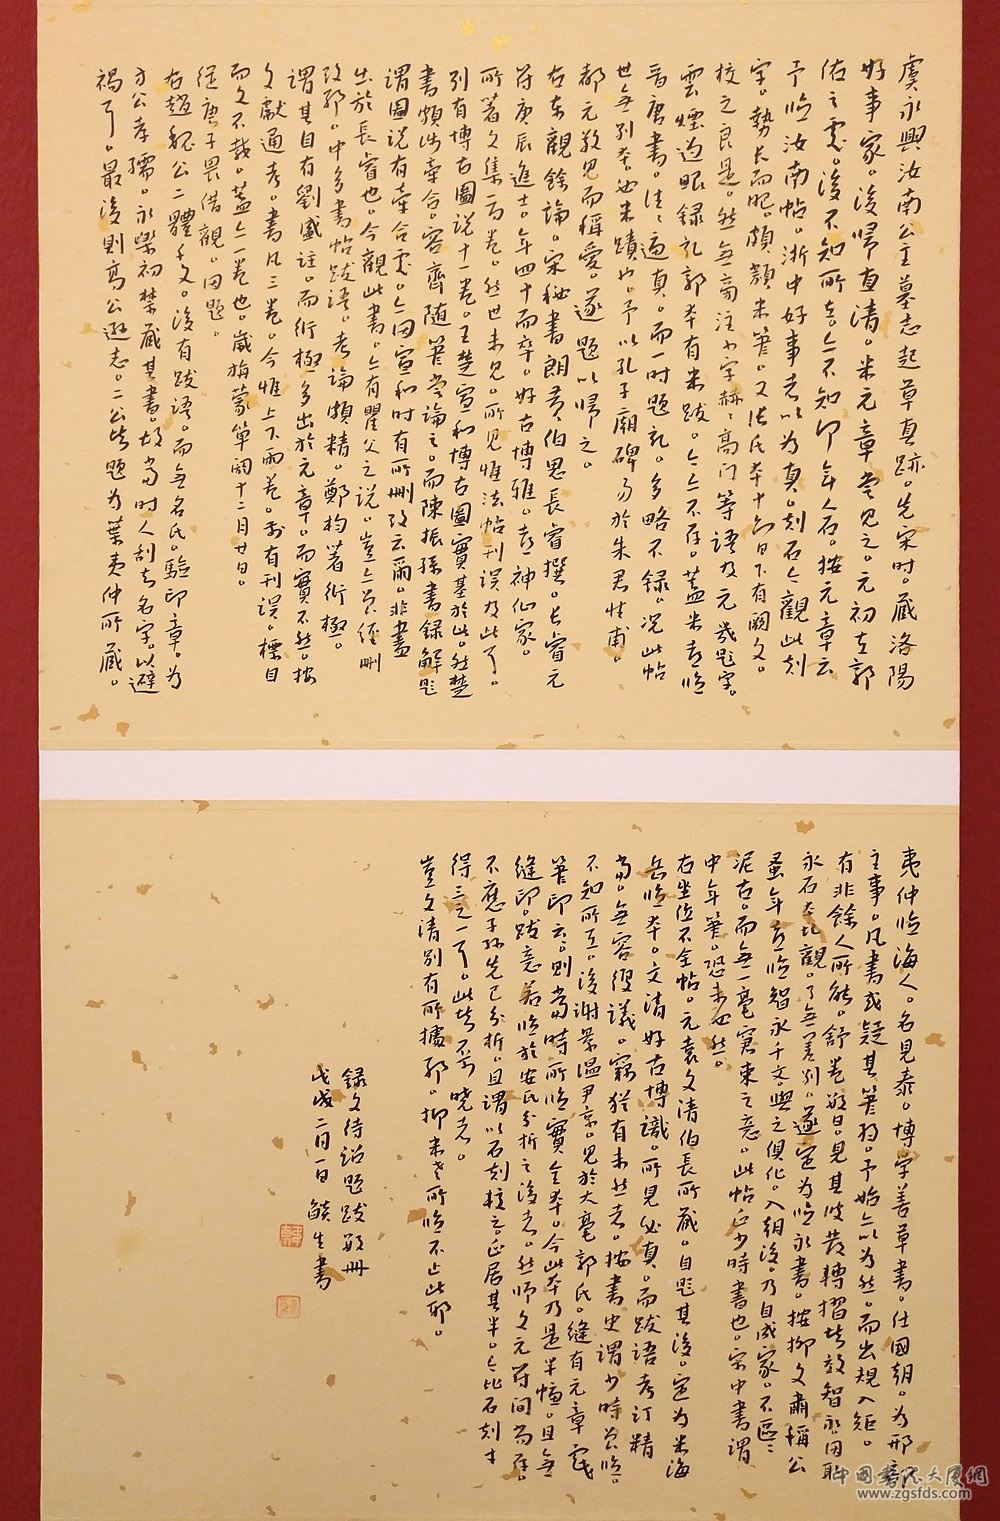 虞永興汝南公主墓志起草真跡。先宋時。藏洛陽
好事家。後歸直清。米元章嘗見之。元初在郭
佑之處。後不知所在。亦不知即年石。按元章云
予臨汝南帖。浙中好事者以為真。刻石。今觀此刻
字。勢長而肥。頗類米筆。又張氏本十六日下有闕文。
校之良是。然無高注小字赫赫高門等語及元幾題字。
雲煙過眼錄記郭本有米跋。今亦不存。蓋米老臨
晉唐書。往往逼真。而一時題記。多略不錄。況此帖
世無別本。必米蹟也。予以孔子廟碑易於朱君性甫。
都元敬見而稱愛。遂題以歸之。
右東觀餘論。宋秘書郎黃伯思長睿撰。長睿元
符庚辰進士。年四十而卒。好古博雅。喜神仙家。
所著文集一百卷。然世未見。所見惟法帖刊誤及此耳。
別有博古圖說十一卷。王楚宣和博古圖實基於此。然楚
書頗涉牽合。容齋隨筆嘗論之。而陳振孫書錄解題
謂圖說有牽合處。亦因宣和時有所刪改云爾。非盡
出於長睿也。今觀此書。亦有瞿父之說。豈亦嘗經刪
改耶。中多書帖跋語。考論頗精。鄭杓著衍極。
謂其目有劉盛註。而衍極多出於元章。而實不然。按
文獻通考。書凡三卷。今惟上下兩卷。前有刊誤。標目
而文不載。蓋亦一卷也。歲旃蒙單閼十二月廿日。
從唐子畏借觀。因題。
右趙魏公二體千文。後有跋語。而無名氏。驗印章。為
方公孝孺。永樂初禁藏其書。故當時人刮去名字。以避
禍耳。最後則高公遜志。二公皆題為葉夷仲所藏。
夷仲臨海人。名見泰。博學善草書。仕國朝。為刑部
主事。凡書或疑其筆弱。予始亦以為然。而出規入矩。
有非餘人所能。舒卷數日。見其波發轉摺皆效智永。因取
永石本比觀。了無差別。遂定為臨永書。按柳文肅稱公
蚤年喜臨智永千文。與之俱化。入朝後。乃自成家。不區區
泥古。而無一毫窘束之意。此帖亦少時書也。宋中書謂
中年筆。恐未必然。
右坐位不全帖。元袁文清伯長所藏。自題其後。定為米海
岳臨本。文清好古博識。所見必真。而跋語考訂精
當。無容復議。竊猶有未然者。按書史謂少時嘗臨。
不知所在。後謝景溫尹京。見於大毫郭氏。縫有元章戲
筆印云。則當時所臨實全本。今此本乃是半幅。且無
縫印。跋意若臨於安氏分析之後者。然師文元符間尚存。
不應子孫先已分析。且謂以石刻校之。正居其半。今比石刻才
得三之一耳。此皆不可曉者。
豈文清別有所據耶。抑米老所臨不止此耶。
錄文待詔題跋數冊
戊戌二月一日 燄生書
中国书法大厦網
www.zgsfds.com